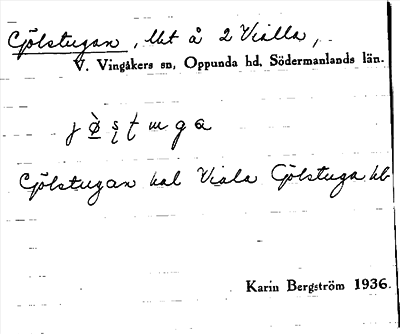 Gölstugan, lht å 2 Vialla,
V. Vingåkers sn, Oppunda hd, Södermanlands län.
Gölstugan hal Viala Gölstuga hb
Karin Bergström 1936.